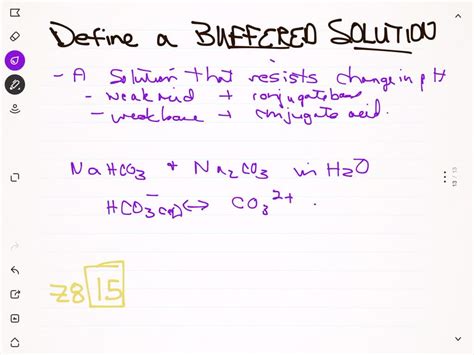 Define a BUFFERED SOLUTION
- A Solution that resists change in pH
- weak acid + conjugate base
- weak base + conjugate acid.
NaHCO3 + Na2CO3 in H2O
HCO3⁻(aq) ↔ CO3²⁺
Z8 15